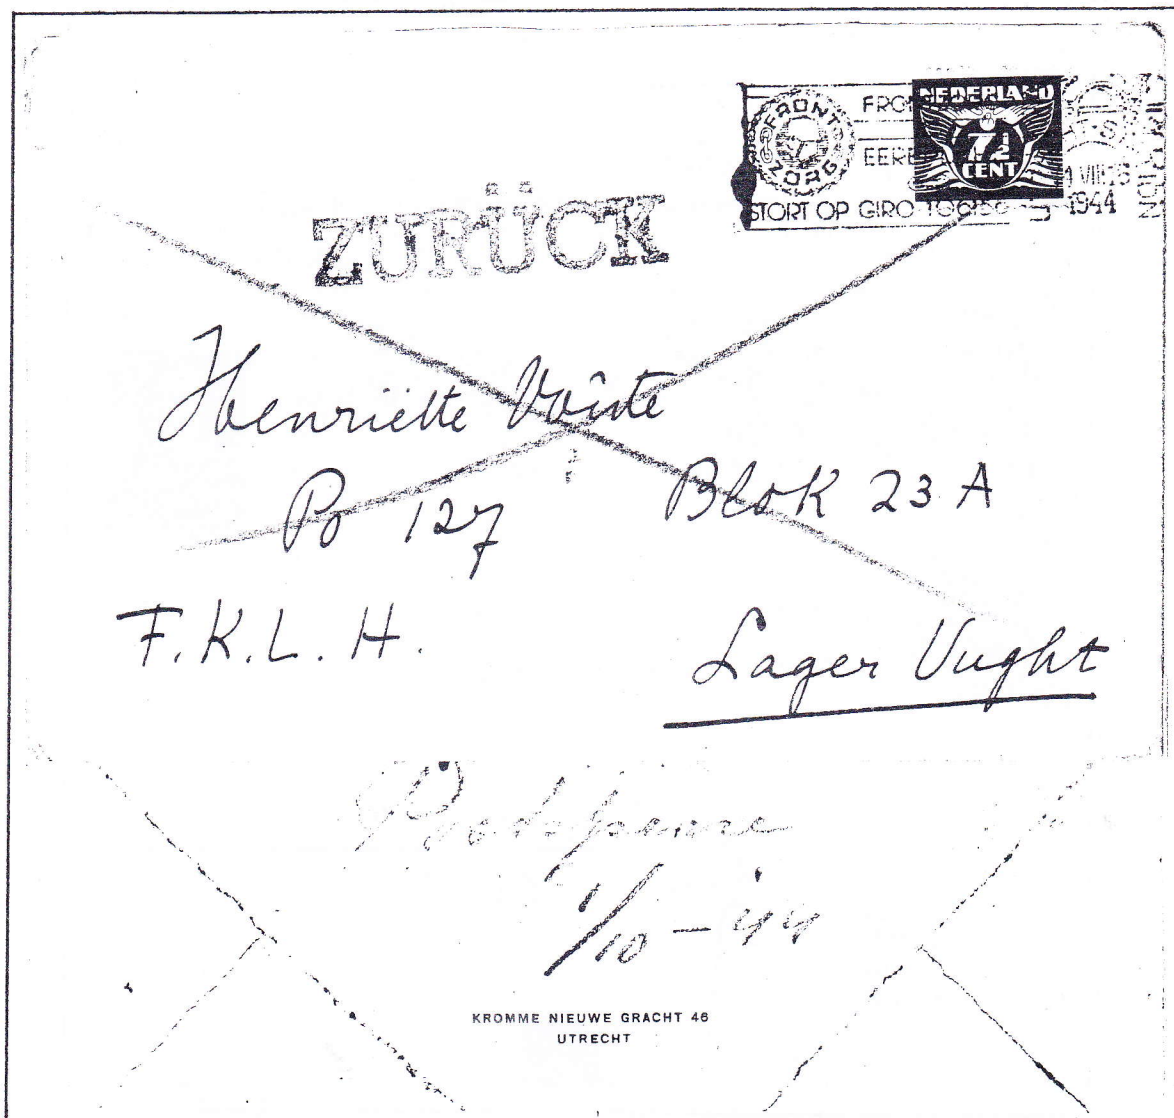 FRONT
ZORG
FRO
EERE
STORT OP GIRO
NEDERLAND
7½
CENT
VIII
1944
ZURÜCK
Henriëtte Voûte
Po 127 Blok 23 A
F.K.L.H.
Lager Vught
Postsperre
1/10-44
KROMME NIEUWE GRACHT 46
UTRECHT